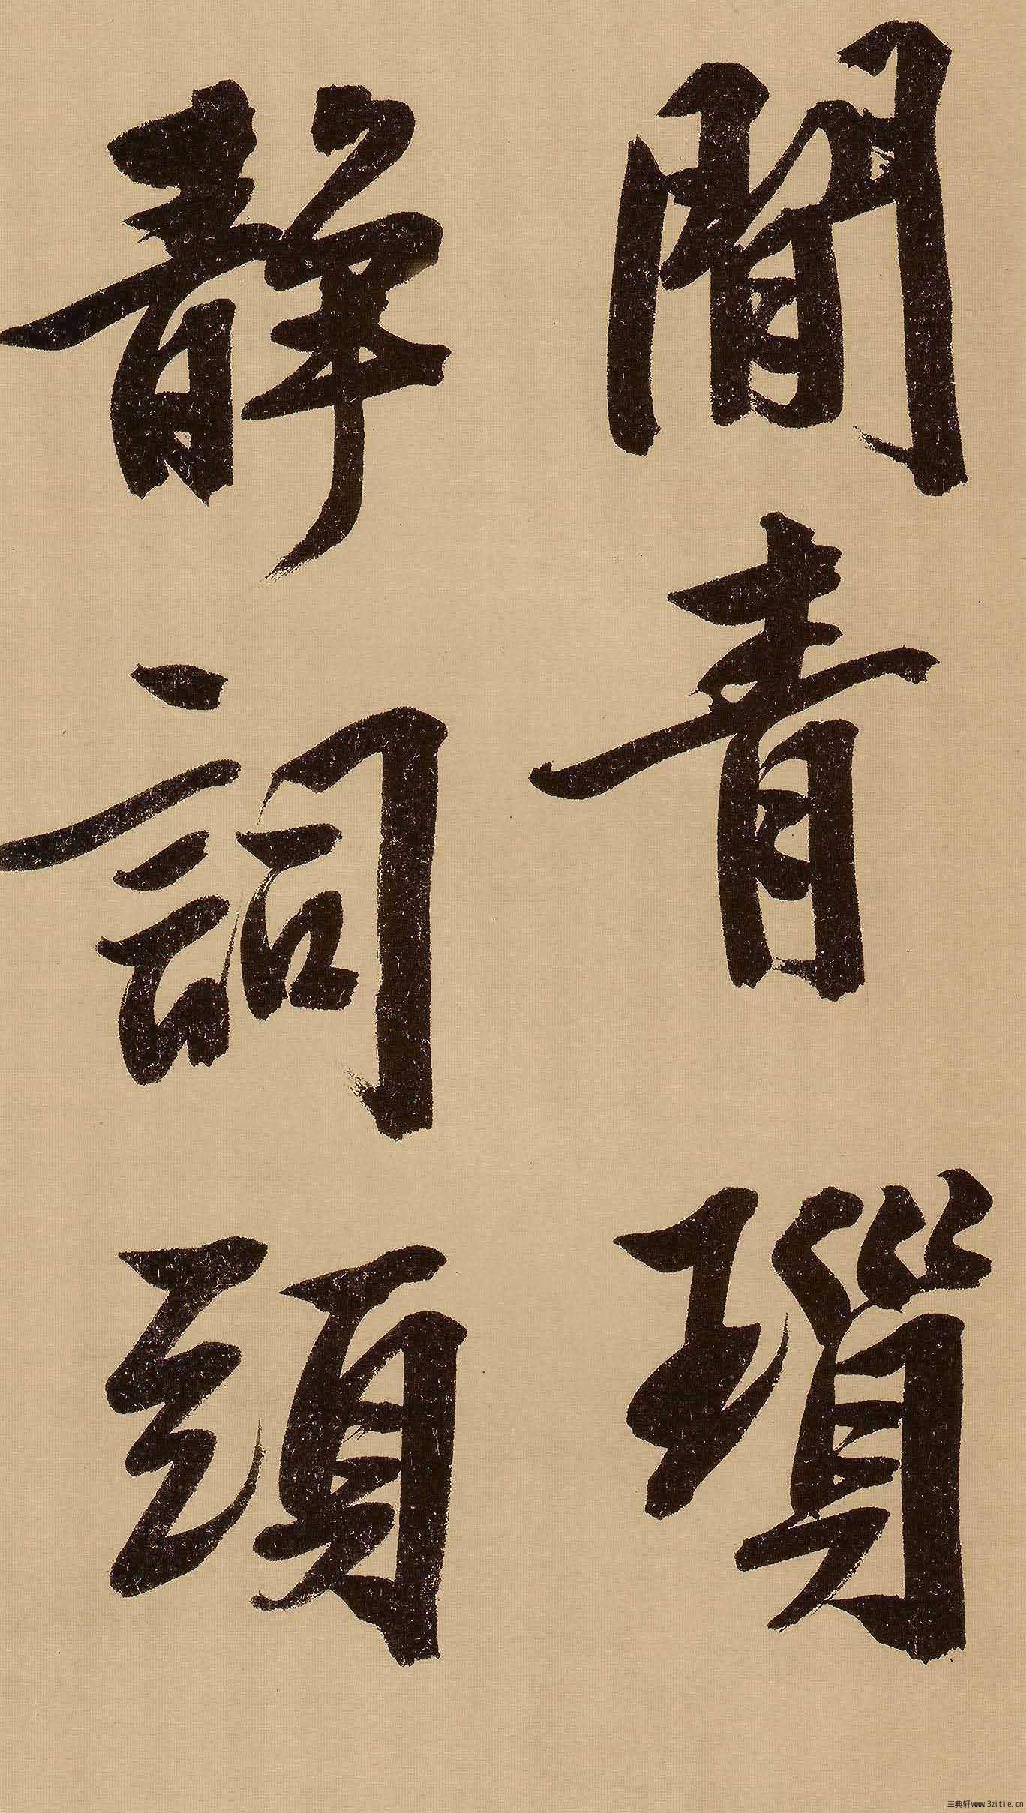 閒青瑣
靜詞頭
三典轩www.3zitie.cn